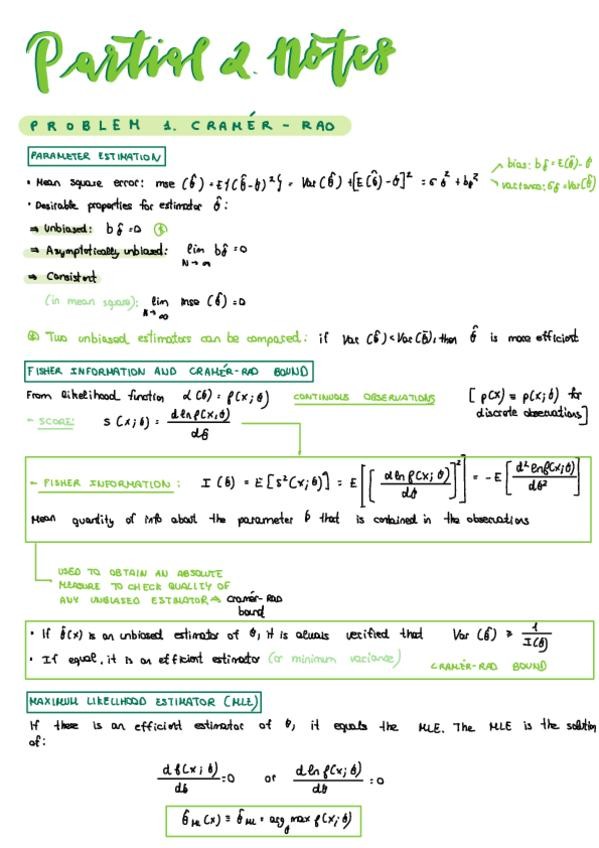 Partial 2. Notes
PROBLEM 1. CRAMÉR-RAO
PARAMETER ESTIMATION
• Mean square error: mse (θ̂) = E{(θ̂-θ)²} = Var (θ̂) + [E(θ̂)-θ]² = σθ̂² + bθ̂²
bias: bθ̂ = E(θ̂)-θ
variance: σθ̂ = Var(θ̂)
• Desirable properties for estimator θ̂:
⇒ Unbiased: bθ̂ = 0 (*)
⇒ Asymptotically unbiased: lim bθ̂ = 0
N→∞
⇒ Consistent
(in mean square): lim mse (θ̂) = 0
N→∞
(*) Two unbiased estimators can be compared: if Var (θ̂) < Var (θ̂), then θ̂ is more efficient
FISHER INFORMATION AND CRAMÉR-RAO BOUND
From likelihood function L(θ) = f(x;θ) CONTINUOUS OBSERVATIONS [p(x) ≡ p(x;θ) for
discrete observations]
- SCORE: s(x;θ) = d ln f(x;θ) / dθ
- FISHER INFORMATION: I(θ) = E[s²(x;θ)] = E[[d ln f(x;θ) / dθ]²] = -E[d² ln f(x;θ) / dθ²]
Mean quantity of info about the parameter θ that is contained in the observations
USED TO OBTAIN AN ABSOLUTE
MEASURE TO CHECK QUALITY OF
ANY UNBIASED ESTIMATOR ⇒ Cramér-Rao
bound
• If θ̂(x) is an unbiased estimator of θ, it is always verified that Var (θ̂) ≥ 1 / I(θ)
• If equal, it is an efficient estimator (or minimum variance) CRAMÉR-RAO BOUND
MAXIMUM LIKELIHOOD ESTIMATOR (MLE)
If there is an efficient estimator of θ, it equals the MLE. The MLE is the solution
of:
d f(x;θ) / dθ = 0 or d ln f(x;θ) / dθ = 0
θ̂ML(x) ≡ θ̂ML = argθ max f(x;θ)